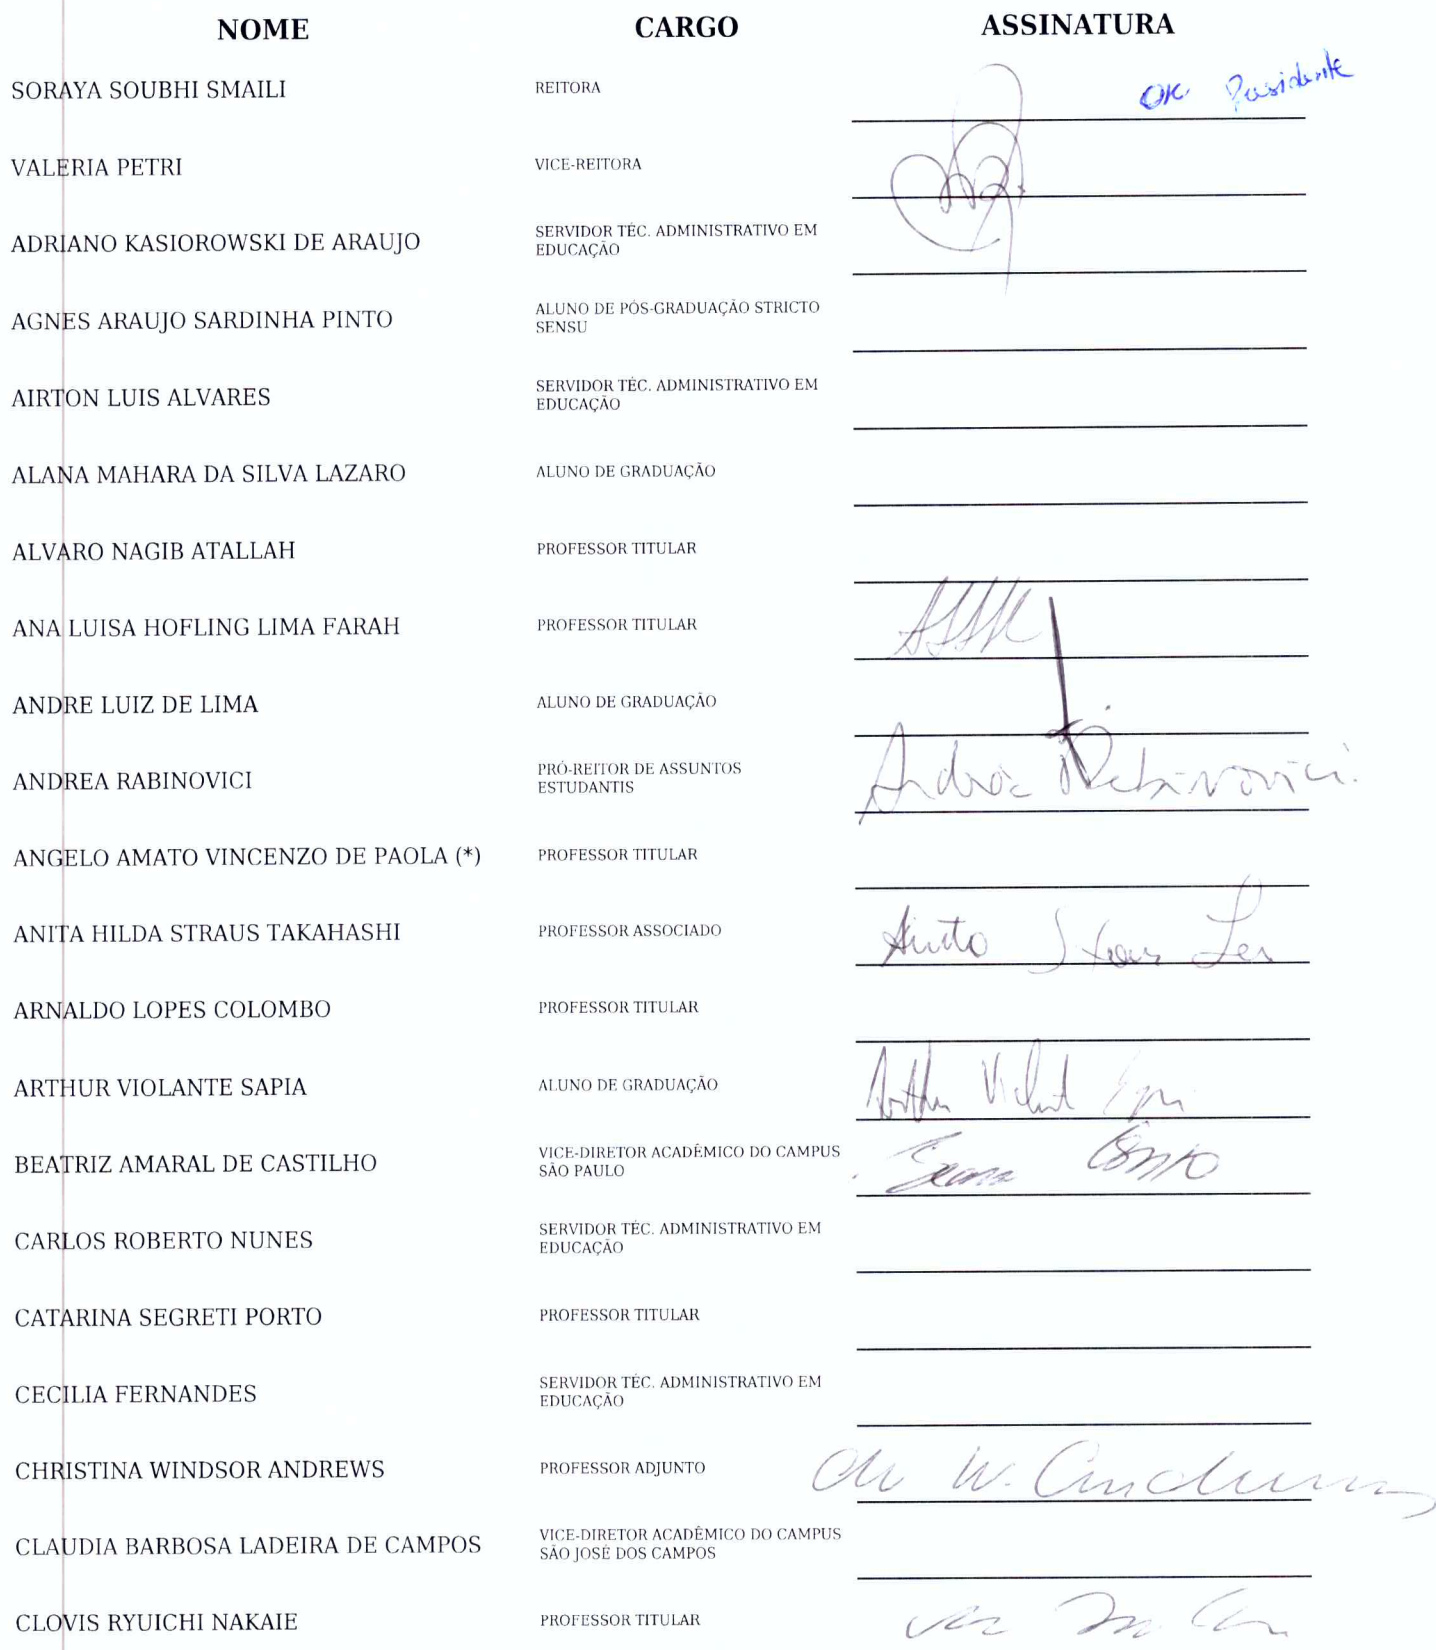 NOME CARGO ASSINATURA
SORAYA SOUBHI SMAILI REITORA OK Presidente
VALERIA PETRI VICE-REITORA
ADRIANO KASIOROWSKI DE ARAUJO SERVIDOR TÉC. ADMINISTRATIVO EM
EDUCAÇÃO
AGNES ARAUJO SARDINHA PINTO ALUNO DE PÓS-GRADUAÇÃO STRICTO
SENSU
AIRTON LUIS ALVARES SERVIDOR TÉC. ADMINISTRATIVO EM
EDUCAÇÃO
ALANA MAHARA DA SILVA LAZARO ALUNO DE GRADUAÇÃO
ALVARO NAGIB ATALLAH PROFESSOR TITULAR
ANA LUISA HOFLING LIMA FARAH PROFESSOR TITULAR
ANDRE LUIZ DE LIMA ALUNO DE GRADUAÇÃO
ANDREA RABINOVICI PRÓ-REITOR DE ASSUNTOS
ESTUDANTIS Andrea Rabinovici
ANGELO AMATO VINCENZO DE PAOLA (*) PROFESSOR TITULAR
ANITA HILDA STRAUS TAKAHASHI PROFESSOR ASSOCIADO Anita Straus
ARNALDO LOPES COLOMBO PROFESSOR TITULAR
ARTHUR VIOLANTE SAPIA ALUNO DE GRADUAÇÃO Arthur
BEATRIZ AMARAL DE CASTILHO VICE-DIRETOR ACADÊMICO DO CAMPUS
SÃO PAULO
CARLOS ROBERTO NUNES SERVIDOR TÉC. ADMINISTRATIVO EM
EDUCAÇÃO
CATARINA SEGRETI PORTO PROFESSOR TITULAR
CECILIA FERNANDES SERVIDOR TÉC. ADMINISTRATIVO EM
EDUCAÇÃO
CHRISTINA WINDSOR ANDREWS PROFESSOR ADJUNTO Ch W. Andrews
CLAUDIA BARBOSA LADEIRA DE CAMPOS VICE-DIRETOR ACADÊMICO DO CAMPUS
SÃO JOSÉ DOS CAMPOS
CLOVIS RYUICHI NAKAIE PROFESSOR TITULAR